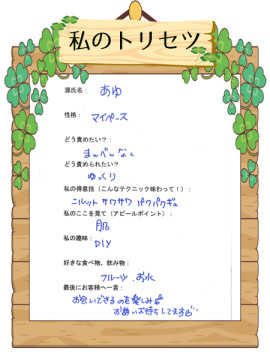 私のトリセツ
源氏名： あゆ
性格： マイペース
どう責めたい？：
まんべんなく
どう責められたい？：
ゆっくり
私の得意技（こんなテクニック味わって！）：
ニルット サワサワ パクパクギュ
私のここを見て（アピールポイント）：
肌
私の趣味：
DIY
好きな食べ物、飲み物：
フルーツ .お水
最後にお客様へ一言：
お会いできるのを楽しみ
お誘いお待ちしてます